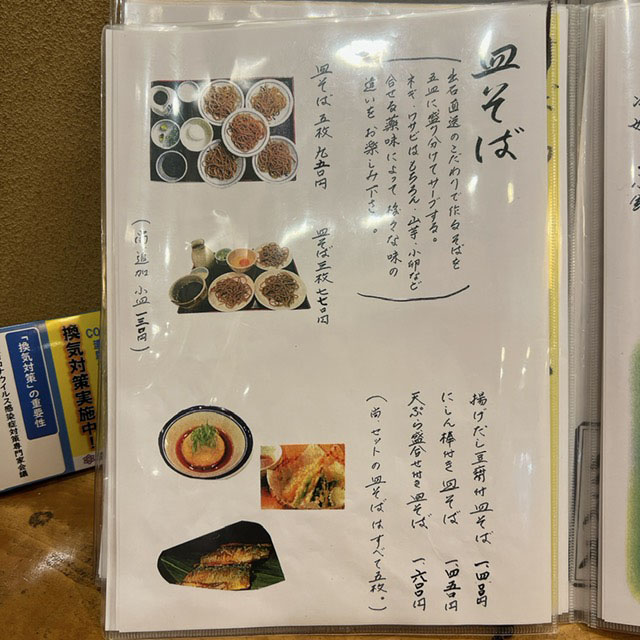 皿そば
出石直送のこだわりで作るそばを
五皿に盛り分けてサーブする。
ネギ、ワサビはもちろん、山芋、小卵など
合せる薬味によって様々な味の
違いをお楽しみ下さい。
皿そば 五枚 九五〇円
皿そば 三枚 七七〇円
(尚 追加 小皿 一三〇円)
揚げだし豆腐付 皿そば 一、四〇〇円
にしん棒付き 皿そば 一、四五〇円
天ぷら盛合せ付き 皿そば 一、六〇〇円
(尚 セットの皿そばはすべて五枚。)
換気対策実施中!
「換気対策」の重要性
ウイルス感染症対策専門家会議